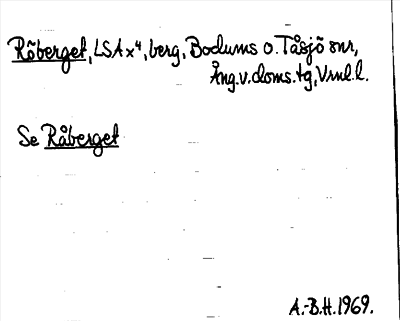 Röberget, LSA x⁴, berg, Bodums o. Tåsjö snr,
Ång. v. doms. tg, Vrnl. l.
Se Råberget
A.-B.H. 1969.